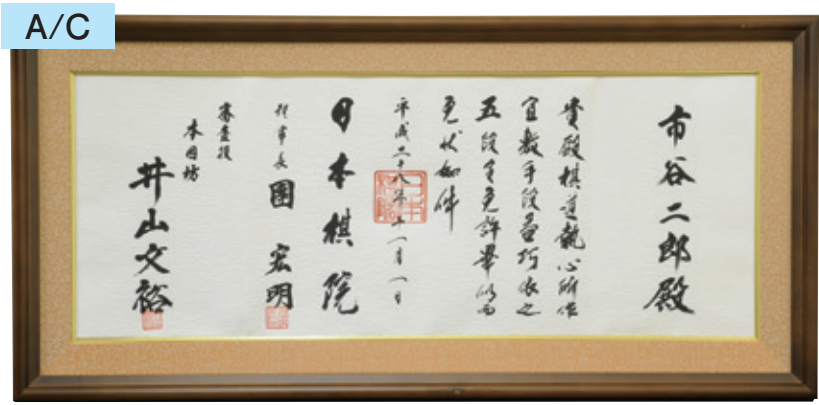 A/C
市谷二郎殿
貴殿棋道執心所作
宜敷手段益巧依之
五段令免許畢仍而
免状如件
平成二十八年十一月一日
日本棋院
理事長 團 宏明
審査役
本因坊
井山文裕